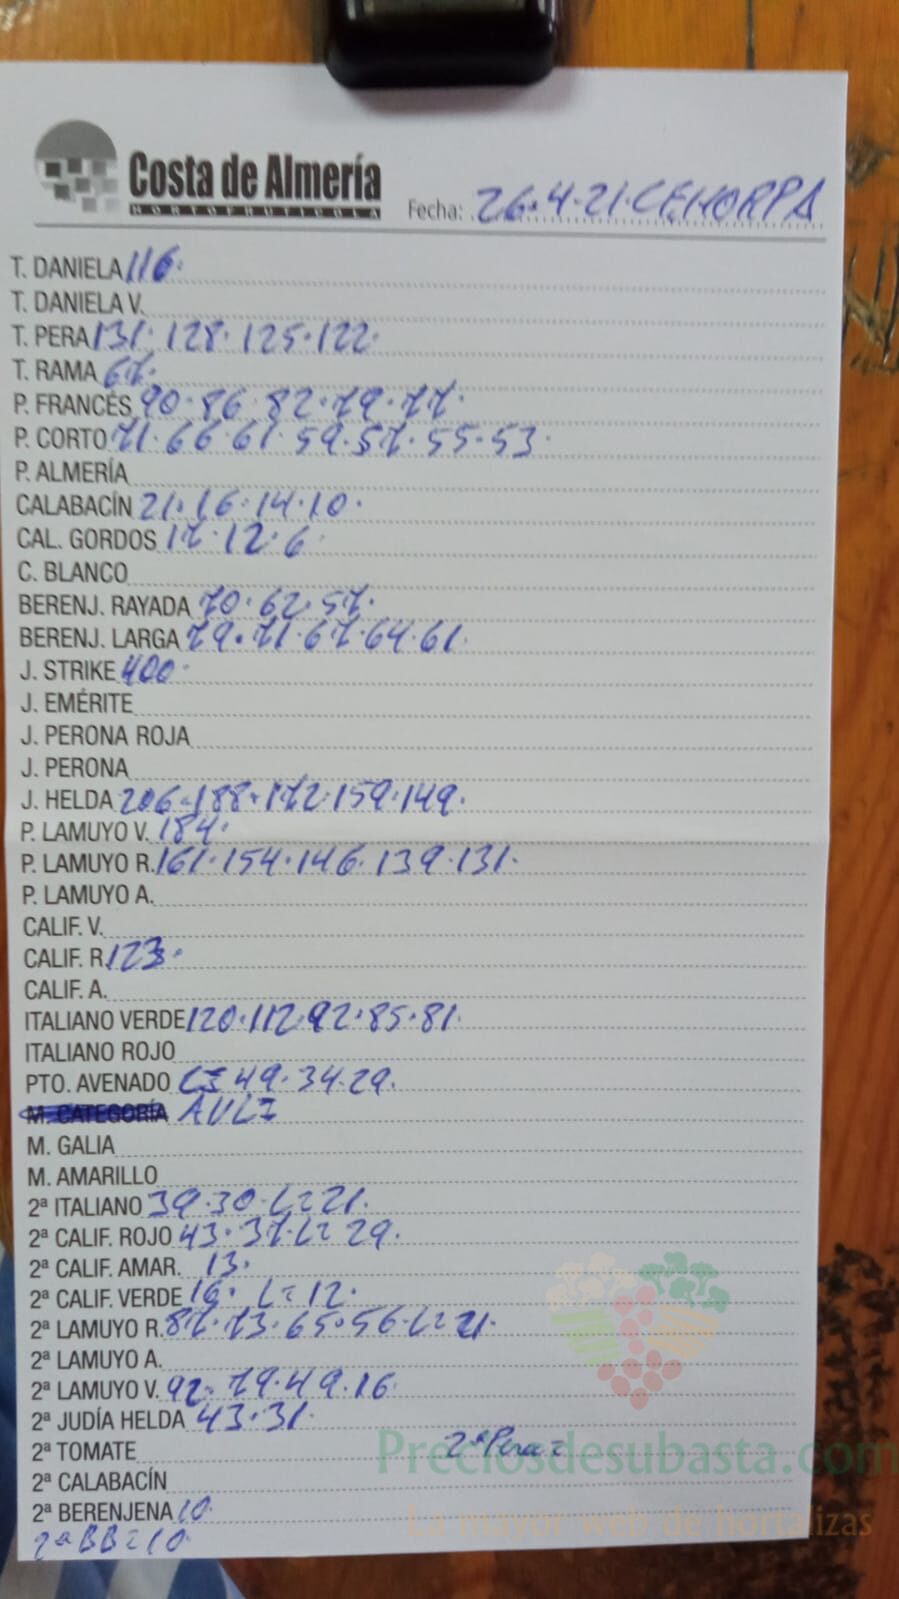 Costa de Almería
HORTOFRUTICOLA
Fecha: 26.4.21.CEHORPA
T. DANIELA 116.
T. DANIELA V.
T. PERA 131. 128. 125.122.
T. RAMA 67.
P. FRANCÉS 90.86.82.79.77.
P. CORTO 71.66.61.59.57.55.53.
P. ALMERÍA
CALABACÍN 21.16.14.10.
CAL. GORDOS 17.12.6.
C. BLANCO
BERENJ. RAYADA 70.62.57.
BERENJ. LARGA 79.71.67.64.61.
J. STRIKE 400.
J. EMÉRITE
J. PERONA ROJA
J. PERONA
J. HELDA 206.188.172.159.149.
P. LAMUYO V. 184.
P. LAMUYO R. 161.154.146.139.131.
P. LAMUYO A.
CALIF. V.
CALIF. R. 123.
CALIF. A.
ITALIANO VERDE 120.112.92.85.81.
ITALIANO ROJO
PTO. AVENADO 49.34.29.
M. CATEGORÍA
M. GALIA
M. AMARILLO
2ª ITALIANO 39.30.L=21.
2ª CALIF. ROJO 43.37.L=29.
2ª CALIF. AMAR. 13.
2ª CALIF. VERDE 16. L=12.
2ª LAMUYO R. 87.73.65.56.L=21.
2ª LAMUYO A.
2ª LAMUYO V. 92.79.49.16.
2ª JUDÍA HELDA 43.31.
2ª TOMATE 2ª Pera=
2ª CALABACÍN
2ª BERENJENA 10.
2ª BB=10.
Preciosdesubasta.com
La mayor web de hortalizas